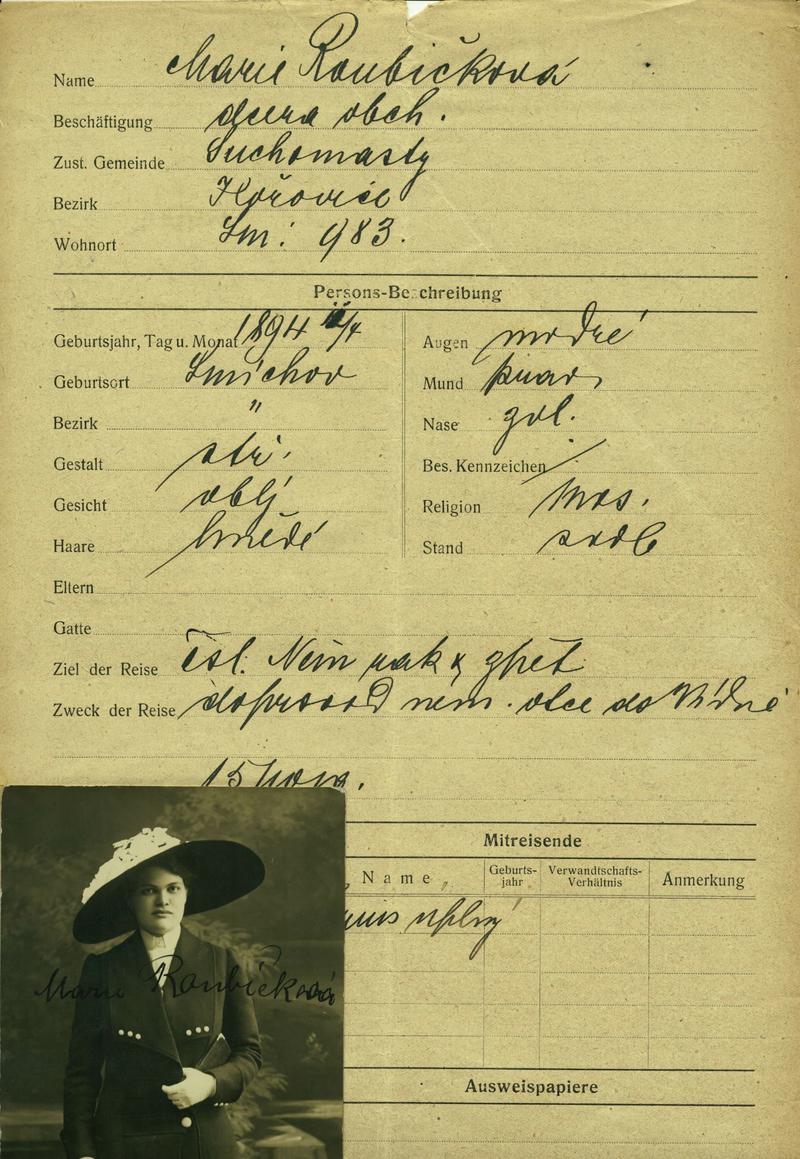 Name Marie Roubičková
Beschäftigung dcera obch.
Zust. Gemeinde Suchomasty
Bezirk Hořovice
Wohnort Sm: 983.
Persons-Beschreibung
Geburtsjahr, Tag u. Monat 1894 /4
Geburtsort Smíchov
Bezirk "
Gestalt stř.
Gesicht oblý
Haare hnědé
Augen modré
Mund
Nase zvl.
Bes. Kennzeichen /
Religion mos.
Stand svob
Eltern
Gatte
Ziel der Reise čsl. Něm rak zpět
Zweck der Reise doprovod nem. otce do Vídně
15
Mitreisende
„ Name „
Geburts-jahr
Verwandtschafts-Verhältnis
Anmerkung
Marie Roubičková
Ausweispapiere